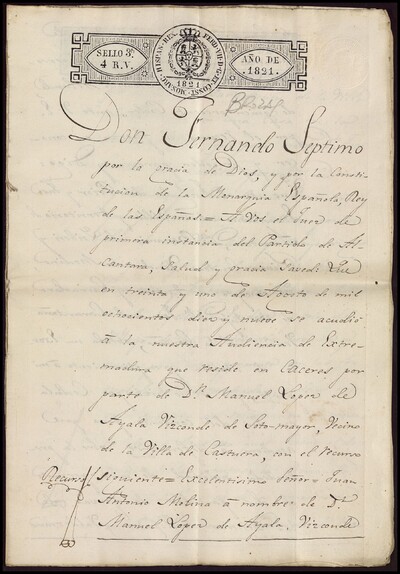 SELLO 3º
4 R.V.
HISPAN. REX. FERD. VII. D. G. ET CONST. MONARC.
1821
AÑO DE
1821.
Don Fernando Septimo
por la gracia de Dios, y por la Consti
tucion de la Monarquia Española, Rey
de las Españas = A Vos el Juez de
primera instancia del Partido de Al-
cantara, Salud y gracia Savedi Que
en treinta y uno de Agosto de mil
ochocientos diez y nueve se acudió
á la nuestra Audiencia de Extre-
madura que reside en Caceres por
parte de Dn. Manuel Lopez de
Ayala Vizconde de Soto-mayor, Vecino
de la Villa de Castuera, con el recurso
Recurso
siguiente = Excelentisimo Señor = Juan
Antonio Molina á nombre de Dn.
Manuel Lopez de Ayala, Vizconde